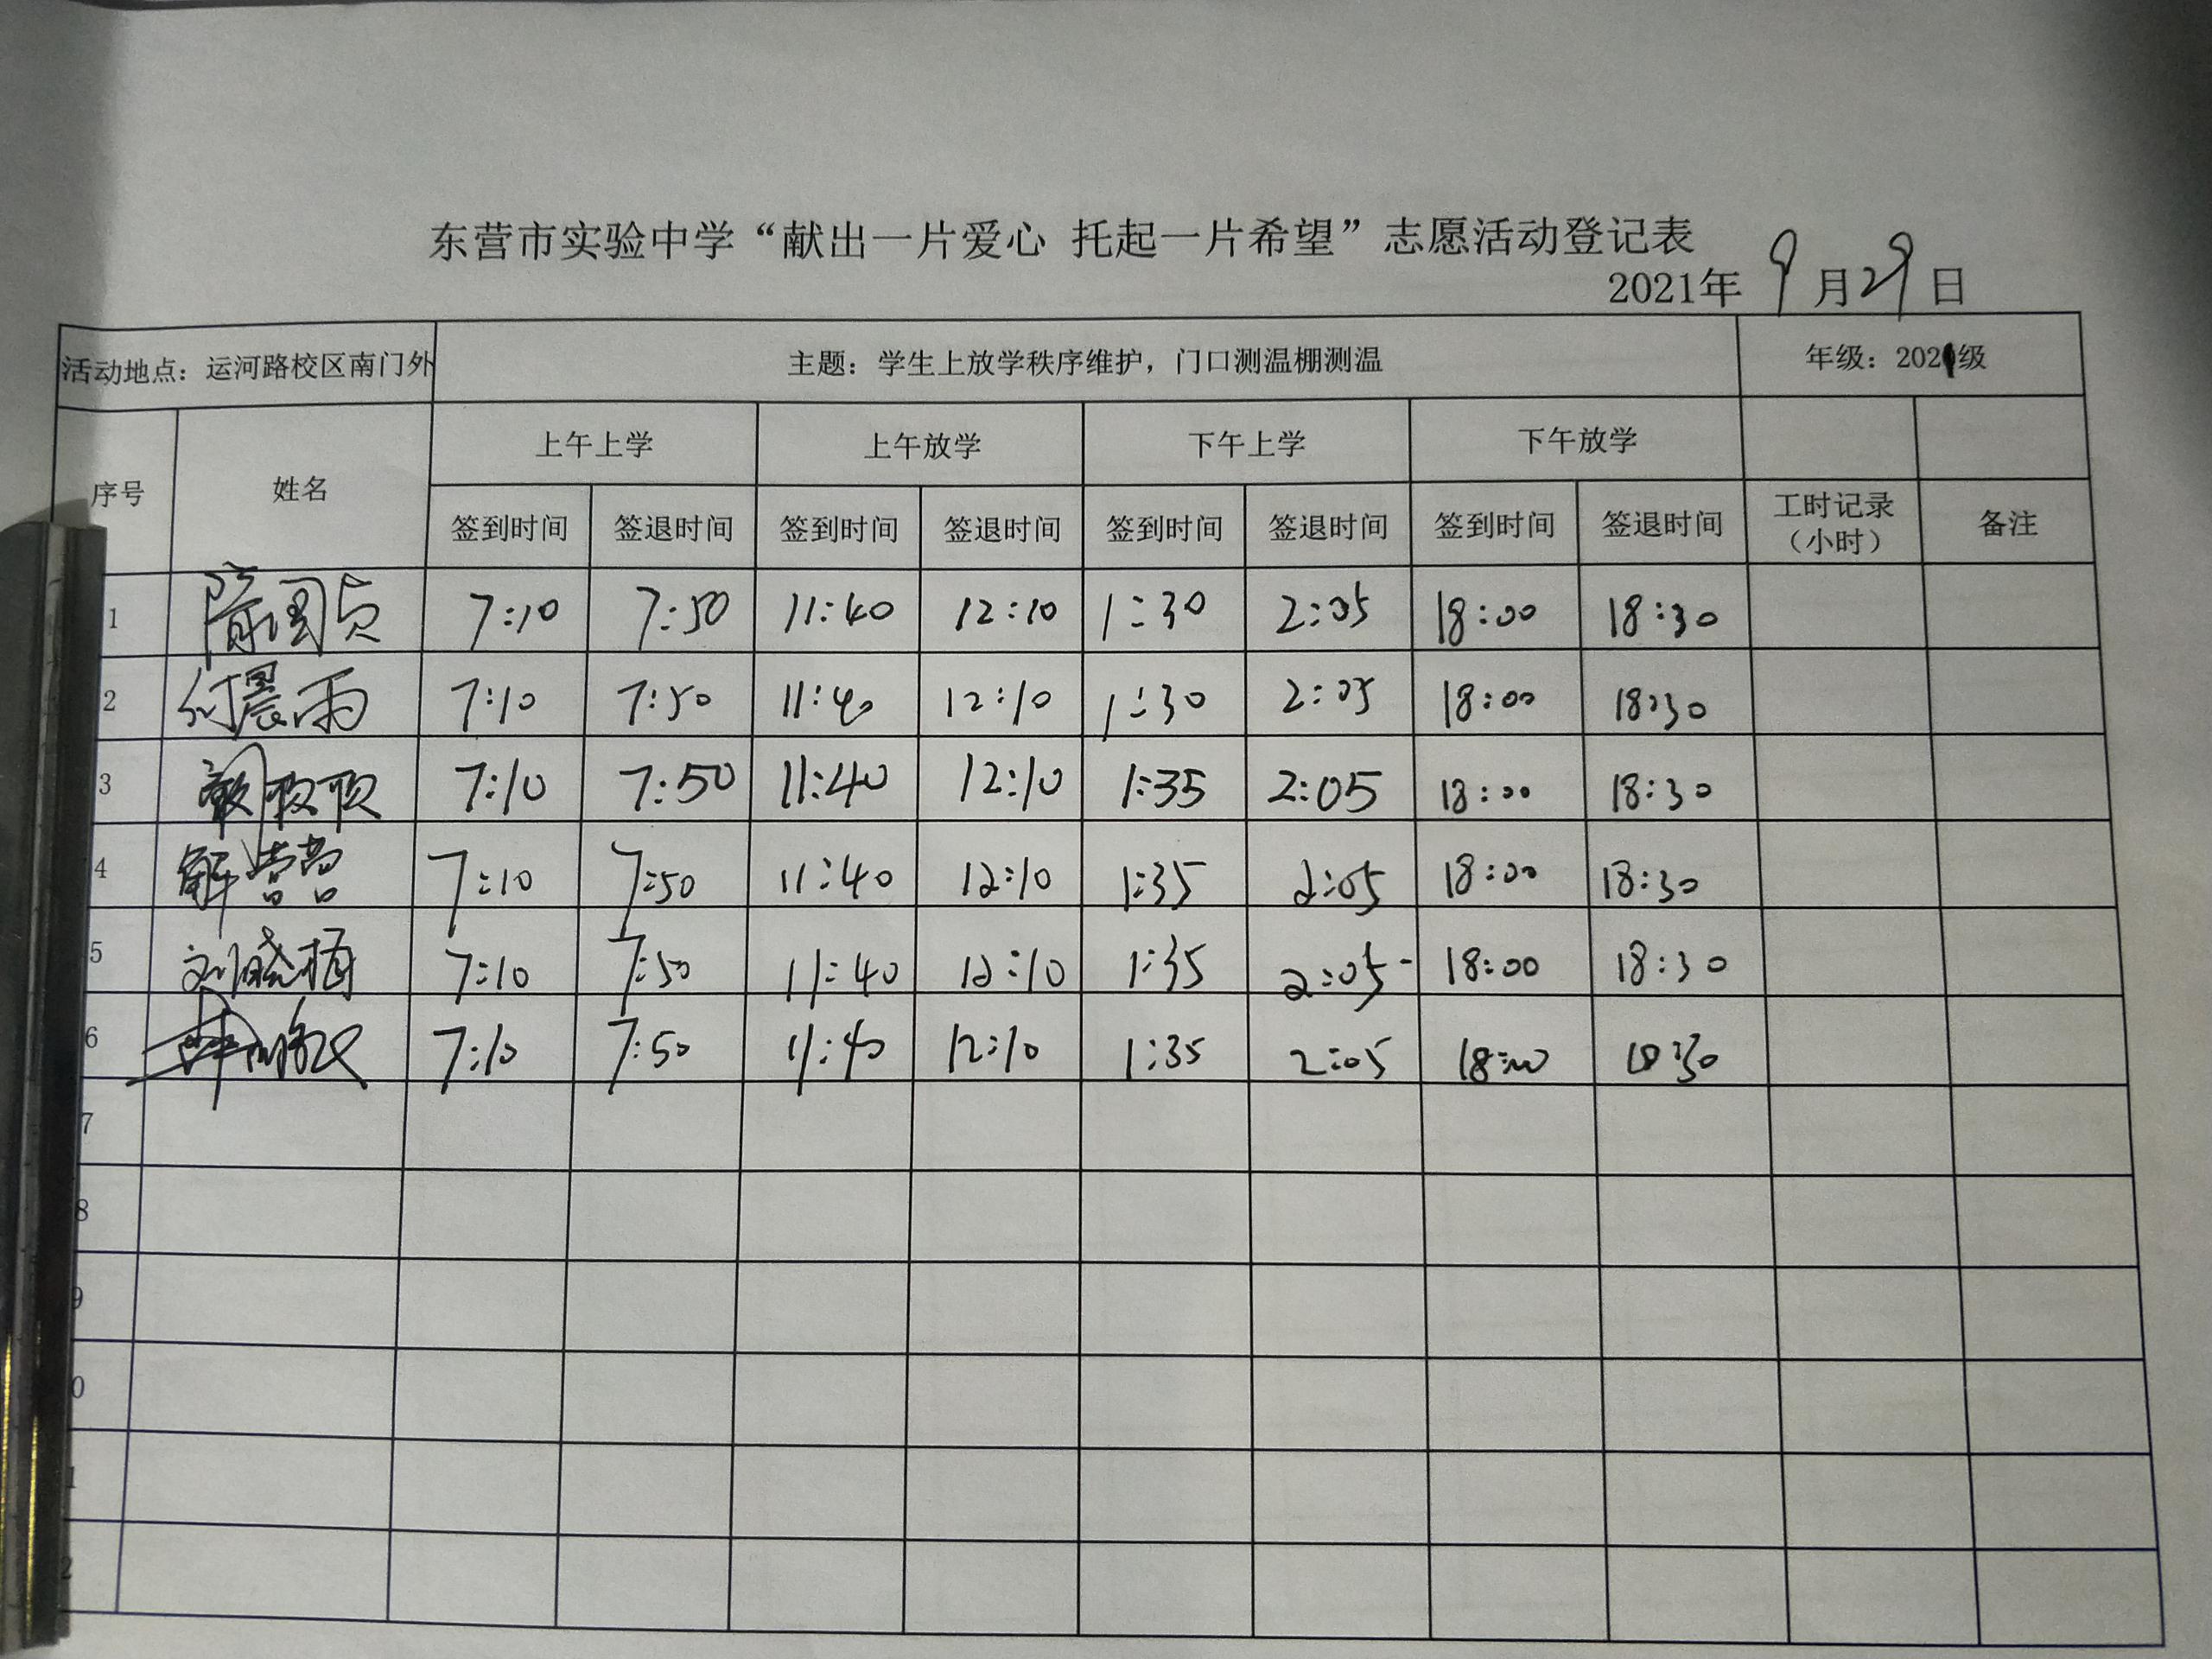 东营市实验中学“献出一片爱心 托起一片希望”志愿活动登记表
2021年 9 月 29 日
活动地点：运河路校区南门外 主题：学生上放学秩序维护，门口测温棚测温 年级：2021级
序号 姓名 上午上学 上午放学 下午上学 下午放学
签到时间 签退时间 签到时间 签退时间 签到时间 签退时间 签到时间 签退时间 工时记录（小时） 备注
1 7:10 7:50 11:40 12:10 1:30 2:05 18:00 18:30
2 晨雨 7:10 7:50 11:40 12:10 1:30 2:05 18:00 18:30
3 7:10 7:50 11:40 12:10 1:35 2:05 18:00 18:30
4 解营营 7:10 7:50 11:40 12:10 1:35 2:05 18:00 18:30
5 刘晓梅 7:10 7:50 11:40 12:10 1:35 2:05 18:00 18:30
6 7:10 7:50 11:40 12:10 1:35 2:05 18:00 18:30
7
8
9
0
1
2